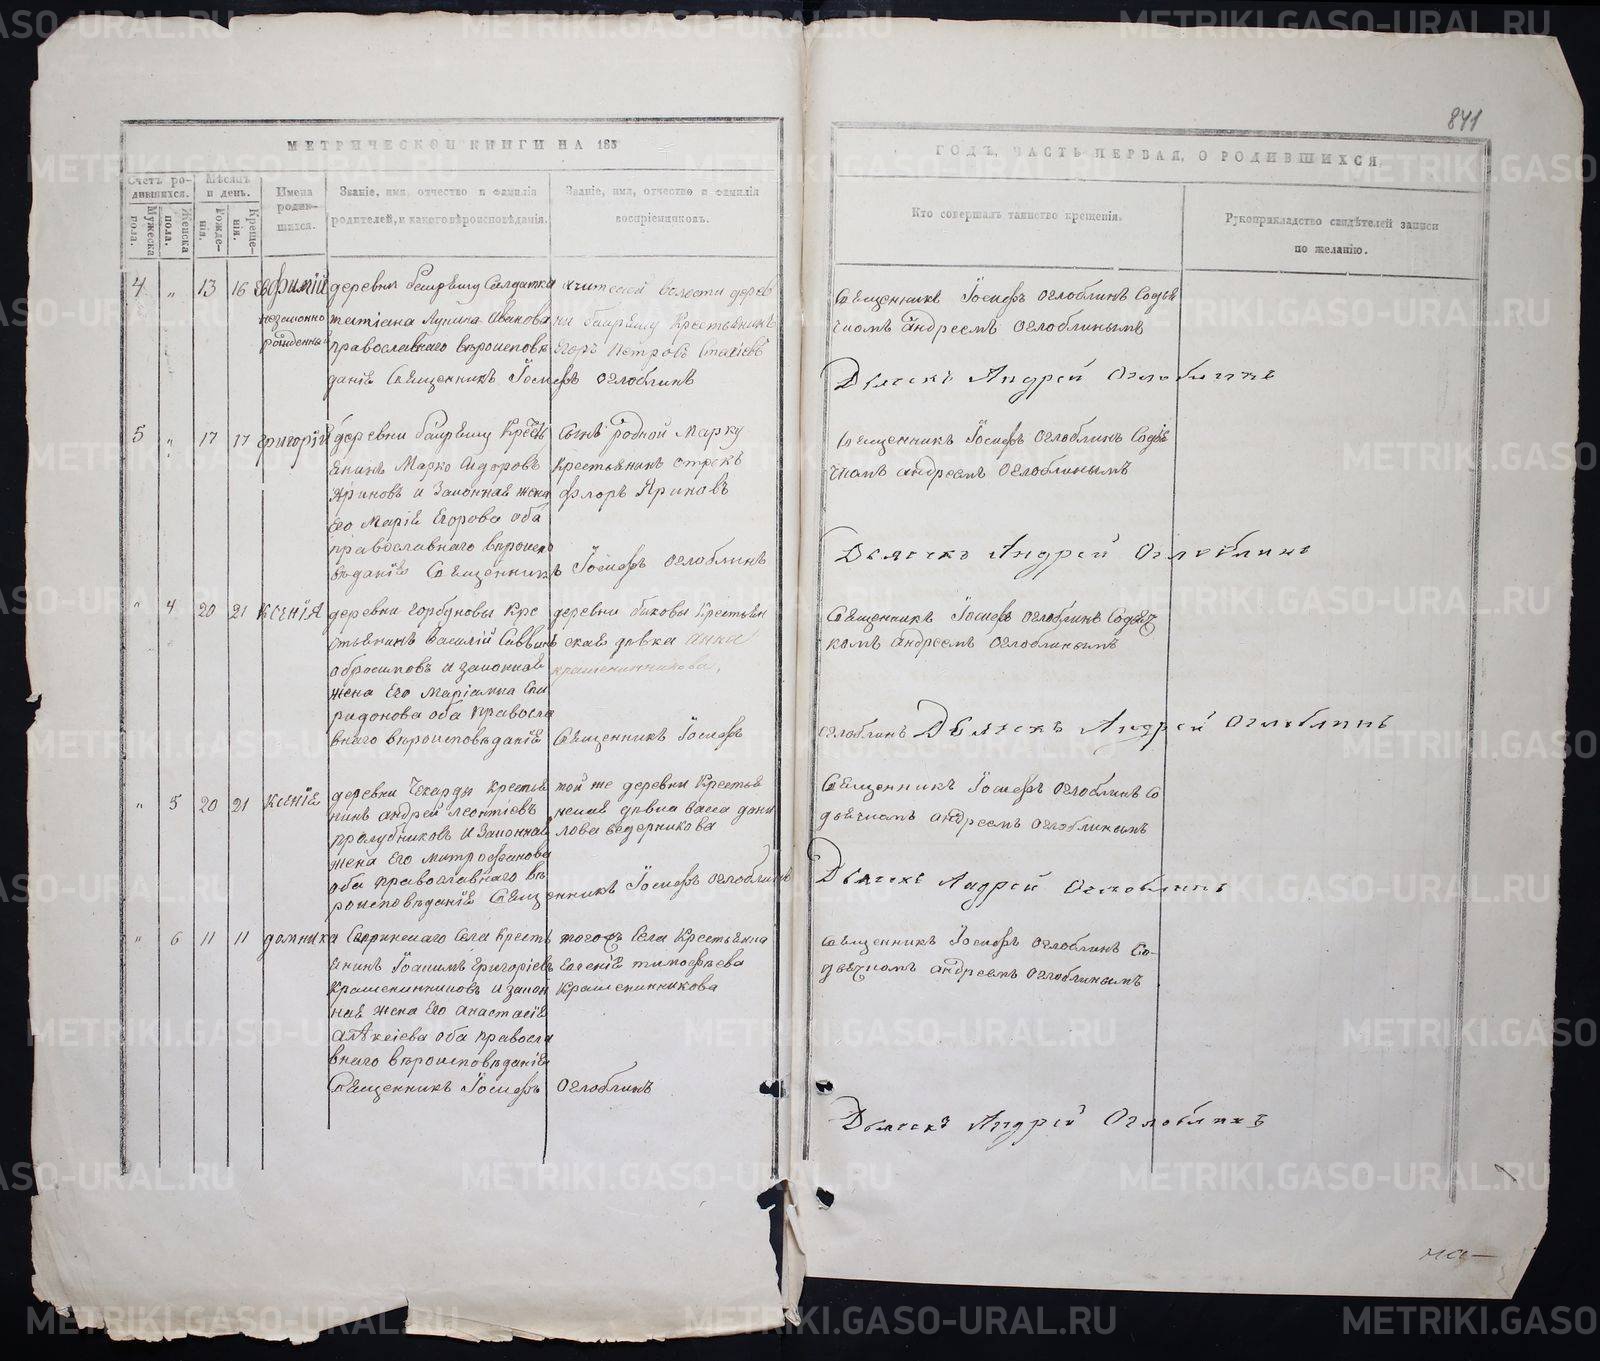 841
МЕТРИЧЕСКОЙ КНИГИ НА 185
ГОДЪ, ЧАСТЬ ПЕРВАЯ, О РОДИВШИХСЯ.
Счетъ ро-
дившихся.
Мужеска
пола.
Женска
пола.
Мѣсяцъ
и день.
Рожде-
нія.
Креще-
нія.
Имена
родив-
шихся.
Званіе, имя, отчество и фамилія
родителей, и какого вѣроисповѣданія.
Званіе, имя, отчество и фамилія
воспріемниковъ.
Кто совершалъ таинство крещенія.
Рукоприкладство свидѣтелей записи
по желанію.
4 " 13 16 Ефимій
незаконно
рожденный
деревни Солдатка
татіана Иванова
православнаго вѣроисповѣ
даніе Священникъ Іосифъ Оглоблинъ
волости дерев
ни Крестьянинъ
Егоръ Петровъ
Священникъ Іосифъ Оглоблинъ Содья
чкомъ андреемъ Оглоблинымъ
Дьячекъ Андрей Оглоблинъ
5 " 17 17 григорій
деревни Кресть
янинъ Марко Сидоровъ
Яриновъ и Законная жена
его Маріе Егорова оба
православнаго вѣроиспо
вѣданіе Священникъ Іосифъ Оглоблинъ
Сынъ родной Марку
Крестьянинъ
флоръ Яриновъ
Священникъ Іосифъ Оглоблинъ Содья
чкомъ андреемъ Оглоблинымъ
Дьячекъ Андрей Оглоблинъ
" 4 20 21 Ксенія
деревни горбуновы Кре
стьянинъ Василій Саввинъ
обросимовъ и законная
жена Его Маріамна Спи
ридонова оба правосла
внаго вѣроисповѣданіе Священникъ Іосифъ
деревни быковы Крестьян
ская девка Анна
крашенинникова,
Священникъ Іосифъ Оглоблинъ Содьяч
комъ андреемъ Оглоблинымъ
оглоблинъ Дьячекъ Андрей Оглоблинъ
" 5 20 21 Ксеніе
деревни Чекарды Крестья
нинъ андрей леонтіевъ
пролубщиковъ и Законная
жена Его митрофанова
оба православнаго вѣ
роисповѣданіе Священникъ Іосифъ Оглоблинъ
той же деревни Крестья
васса дани
лова ведерникова
Священникъ Іосифъ Оглоблинъ Со
дьячкомъ андреемъ Оглоблинымъ
Дьячекъ Андрей Оглоблинъ
" 6 11 11 домника
Села Кресть
янинъ Іоакимъ григоріевъ
Крашенинниковъ и закон
ная жена Его анастасіе
алѣксіева оба правосла
внаго вѣроисповѣданіе
Священникъ Іосифъ Оглоблинъ
тогожъ Села Крестьянка
Евгеніе тимофѣева
Крашенинникова
Священникъ Іосифъ Оглоблинъ Со-
дьячкомъ андреемъ Оглоблинымъ
Дьячекъ Андрей Оглоблинъ
METRIKI.GASO-URAL.RU